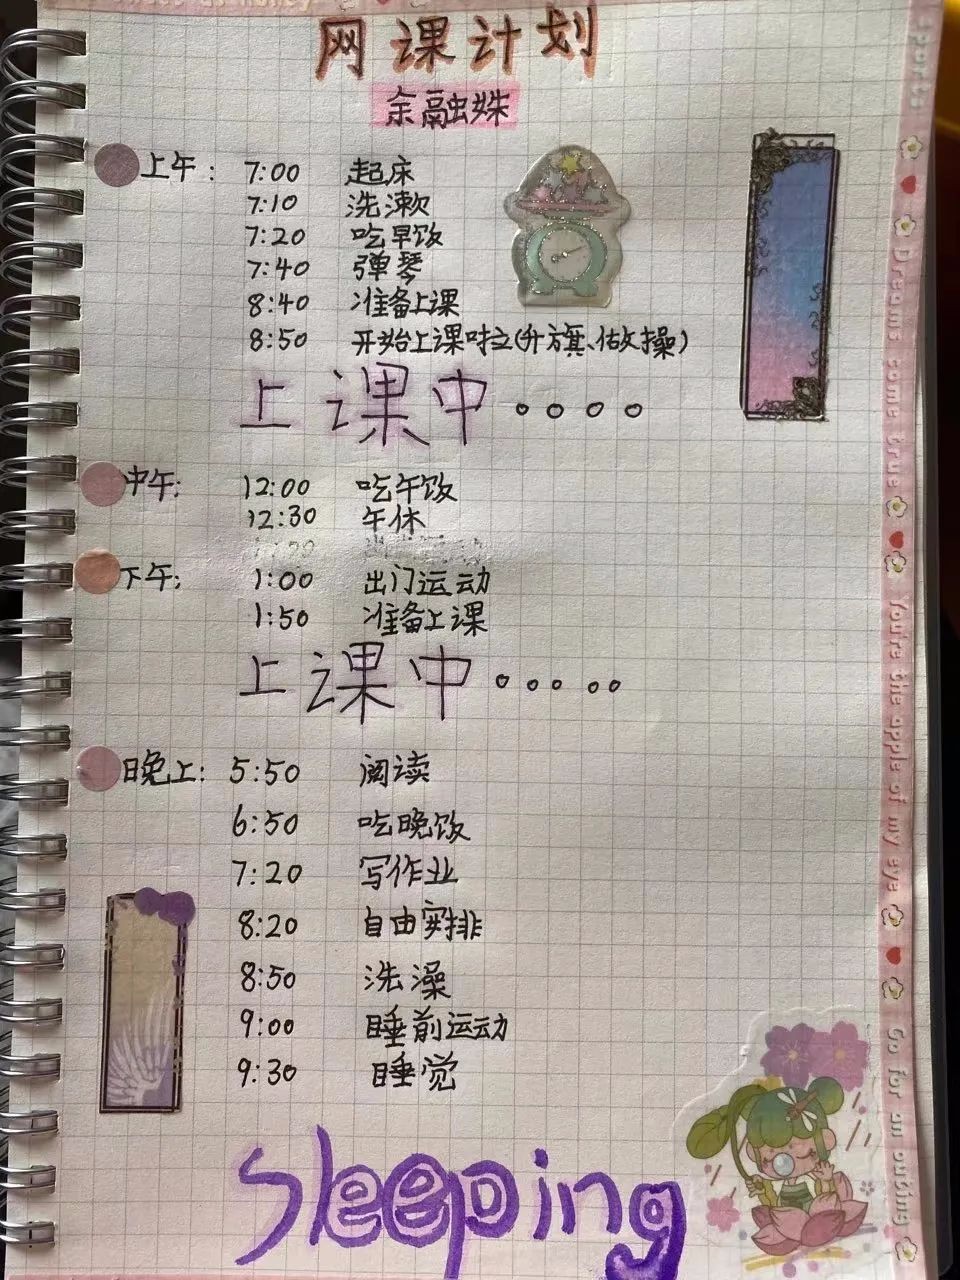 网课计划
余融姝
上午: 7:00 起床
7:10 洗漱
7:20 吃早饭
7:40 弹琴
8:40 准备上课
8:50 开始上课啦(升旗、做操)
上课中。。。。
中午: 12:00 吃午饭
12:30 午休
下午: 1:00 出门运动
1:50 准备上课
上课中。。。。。
晚上: 5:50 阅读
6:50 吃晚饭
7:20 写作业
8:20 自由安排
8:50 洗澡
9:00 睡前运动
9:30 睡觉
Sleeping
sports
Dreams come true
You're the apple of my eye
Go for an outing